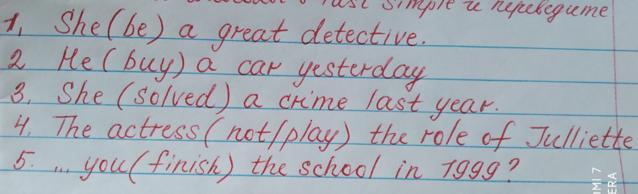 Past Simple и переведите
1, She (be) a great detective.
2 He (buy) a car yesterday
3. She (solved) a crime last year.
4. The actress (not/play) the role of Julliette
5. ... you (finish) the school in 1999?